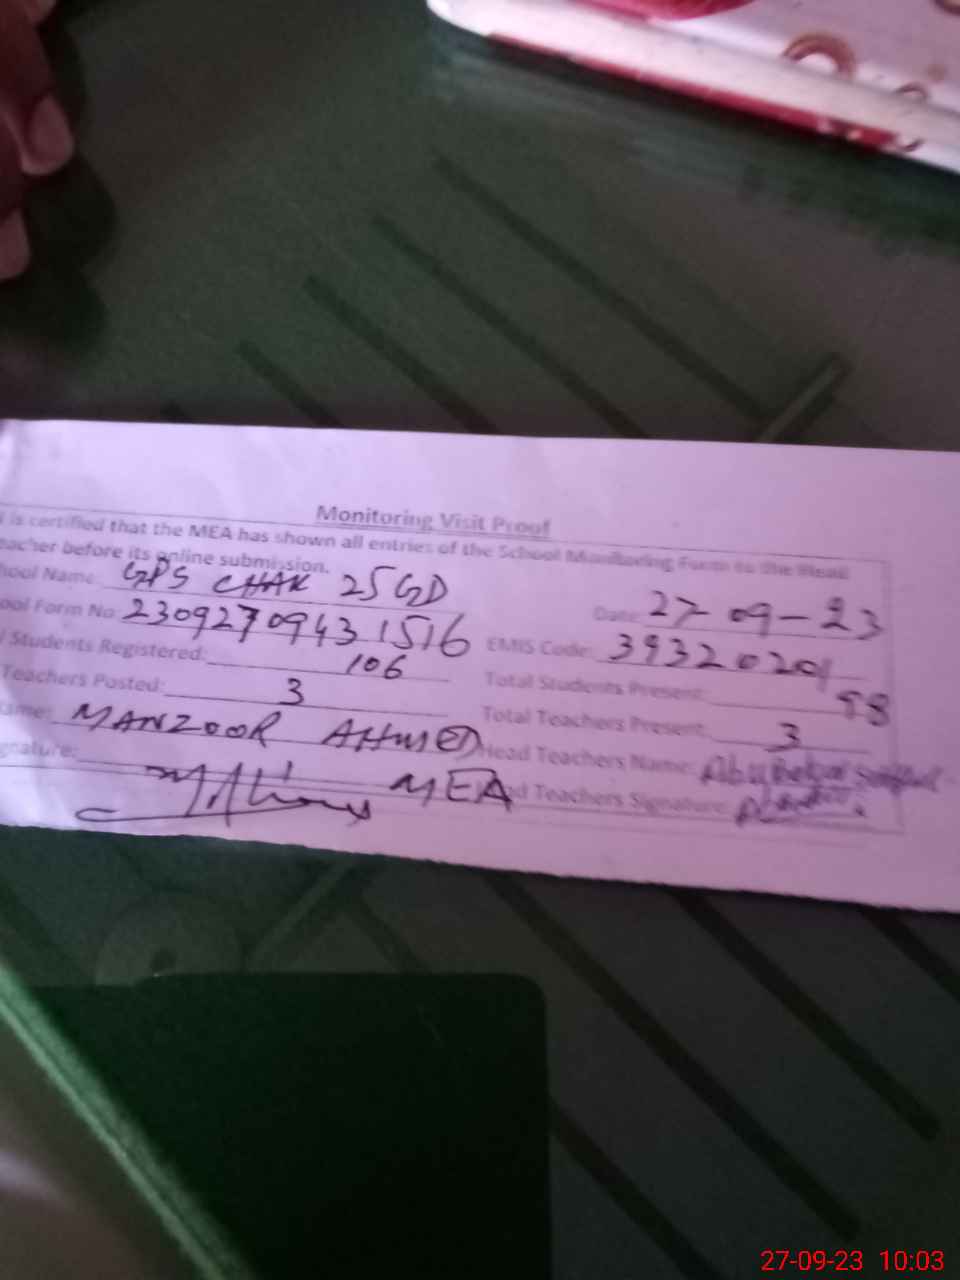 Monitoring Visit Proof
is certified that the MEA has shown all entries of the School Monitoring Form to the Head
eacher before its online submission.
hool Name: GPS CHAK 25 GD Date: 27-09-23
ool Form No: 2309270943 1516 EMIS Code: 39320201
l Students Registered: 106 Total Students Present: 98
Teachers Posted: 3 Total Teachers Present: 3
ame: MANZOOR AHMED Head Teachers Name: Abu Bakar
gnature: MEA ad Teachers Signature:
27-09-23 10:03